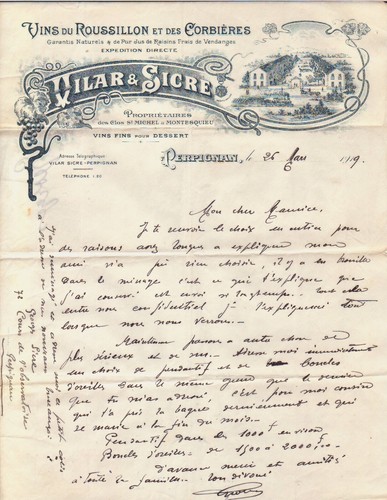 VINS DU ROUSSILLON ET DES CORBIÈRES
Garantis Naturels & de Pur Jus de Raisins Frais de Vendanges
EXPÉDITION DIRECTE
VILAR & SICRE
PROPRIÉTAIRES
des Clos St MICHEL & MONTESQUIEU
VINS FINS POUR DESSERT
Adresse Télégraphique
VILAR SICRE-PERPIGNAN
TÉLÉPHONE 1.20
PERPIGNAN, le 26 Mars 1919.
Mon cher Maurice,
Je te renvoie le choix en entier pour
des raisons assez longues a expliquer mon
ami n'a pu rien choisir, il y a en brouille
dans le ménage c'est ce qui t'explique que
j'ai conservé cet envoi si longtemps. tout cela
entre nous confidentiel je t'expliquerai tout
lorsque nous nous verrons.
Maintenant passons a autre chose de
plus sérieux et de
un choix de pendentif et de boucles
d'oreilles dans le même genre que le dernier
que tu m'as adressé, c'est pour mon cousin
qui t'a pris la bague dernièrement et qui
se marie a la fin du mois.
Pendentif dans les 1000f environ
Boucles d'oreilles de 1500 a 2000f
d'avance merci et amitiés
a toute la famille. Ton dévoué
Sicre
72 Cours de l'observatoire
Perpignan